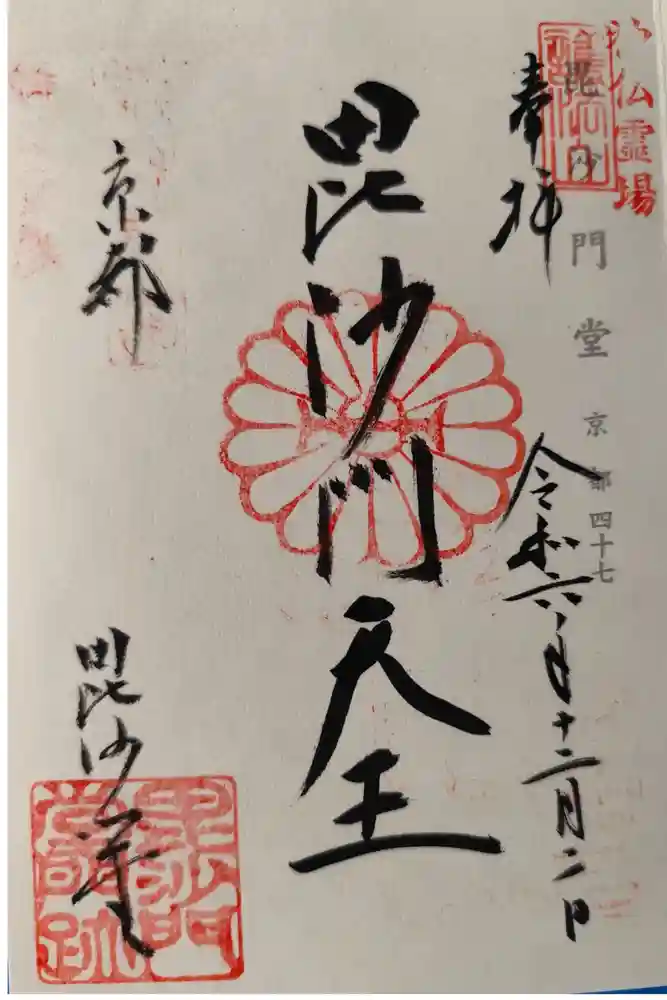 仏霊場
毘沙門堂 京都四十七
奉拝
令和六年十二月二日
毘沙門天王
京都
毘沙門堂